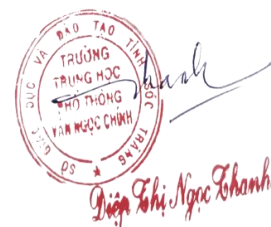 SỞ GIÁO DỤC VÀ ĐÀO TẠO TỈNH SÓC TRĂNG
TRƯỜNG
TRUNG HỌC
PHỔ THÔNG
VĂN NGỌC CHÍNH
Thanh
Diệp Thị Ngọc Thanh